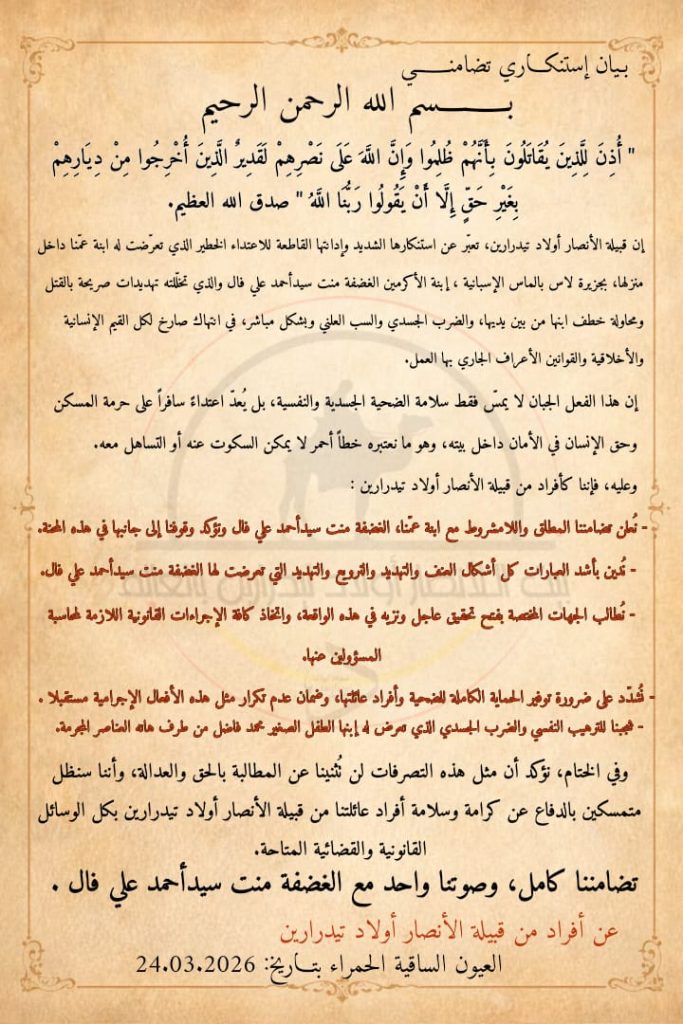 بيان إستنكاري تضامني
بسم الله الرحمن الرحيم
" أُذِنَ لِلَّذِينَ يُقَاتَلُونَ بِأَنَّهُمْ ظُلِمُوا وَإِنَّ اللَّهَ عَلَى نَصْرِهِمْ لَقَدِيرٌ الَّذِينَ أُخْرِجُوا مِنْ دِيَارِهِمْ
بِغَيْرِ حَقٍّ إِلَّا أَنْ يَقُولُوا رَبُّنَا اللَّهُ " صدق الله العظيم.
إن قبيلة الأنصار أولاد تيدرارين، تعبّر عن استنكارها الشديد وإدانتها القاطعة للاعتداء الخطير الذي تعرّضت له ابنة عمّنا داخل
منزلها، بجزيرة لاس بالماس الإسبانية ، إبنة الأكرمين الغضفة منت سيدأحمد علي فال والذي تخلّلته تهديدات صريحة بالقتل
ومحاولة خطف ابنها من بين يديها، والضرب الجسدي والسب العلني وبشكل مباشر، في انتهاك صارخ لكل القيم الإنسانية
والأخلاقية والقوانين الأعراف الجاري بها العمل.
إن هذا الفعل الجبان لا يمسّ فقط سلامة الضحية الجسدية والنفسية، بل يُعدّ اعتداءً سافراً على حرمة المسكن
وحق الإنسان في الأمان داخل بيته، وهو ما نعتبره خطاً أحمر لا يمكن السكوت عنه أو التساهل معه.
وعليه، فإننا كأفراد من قبيلة الأنصار أولاد تيدرارين :
- نُعلن تضامننا المطلق واللامشروط مع ابنة عمّنا، الغضفة منت سيدأحمد علي فال ونؤكد وقوفنا إلى جانبها في هذه المحنة.
- نُدين بأشد العبارات كل أشكال العنف والتهديد والترويع والتهديد التي تعرضت لها الغضفة منت سيدأحمد علي فال.
- نُطالب الجهات المختصة بفتح تحقيق عاجل ونزيه في هذه الواقعة، واتخاذ كافة الإجراءات القانونية اللازمة لمحاسبة
المسؤولين عنها.
- نُشدّد على ضرورة توفير الحماية الكاملة للضحية وأفراد عائلتها، وضمان عدم تكرار مثل هذه الأفعال الإجرامية مستقبلا .
- شجبنا للترهيب النفسي والضرب الجسدي الذي تعرض له إبنها الطفل الصغير محمد فاضل من طرف هاته العناصر المجرمة.
وفي الختام، نؤكد أن مثل هذه التصرفات لن تُثنينا عن المطالبة بالحق والعدالة، وأننا سنظل
متمسكين بالدفاع عن كرامة وسلامة أفراد عائلتنا من قبيلة الأنصار أولاد تيدرارين بكل الوسائل
القانونية والقضائية المتاحة.
تضامننا كامل، وصوتنا واحد مع الغضفة منت سيدأحمد علي فال .
عن أفراد من قبيلة الأنصار أولاد تيدرارين
العيون الساقية الحمراء بتاريخ: 24.03.2026